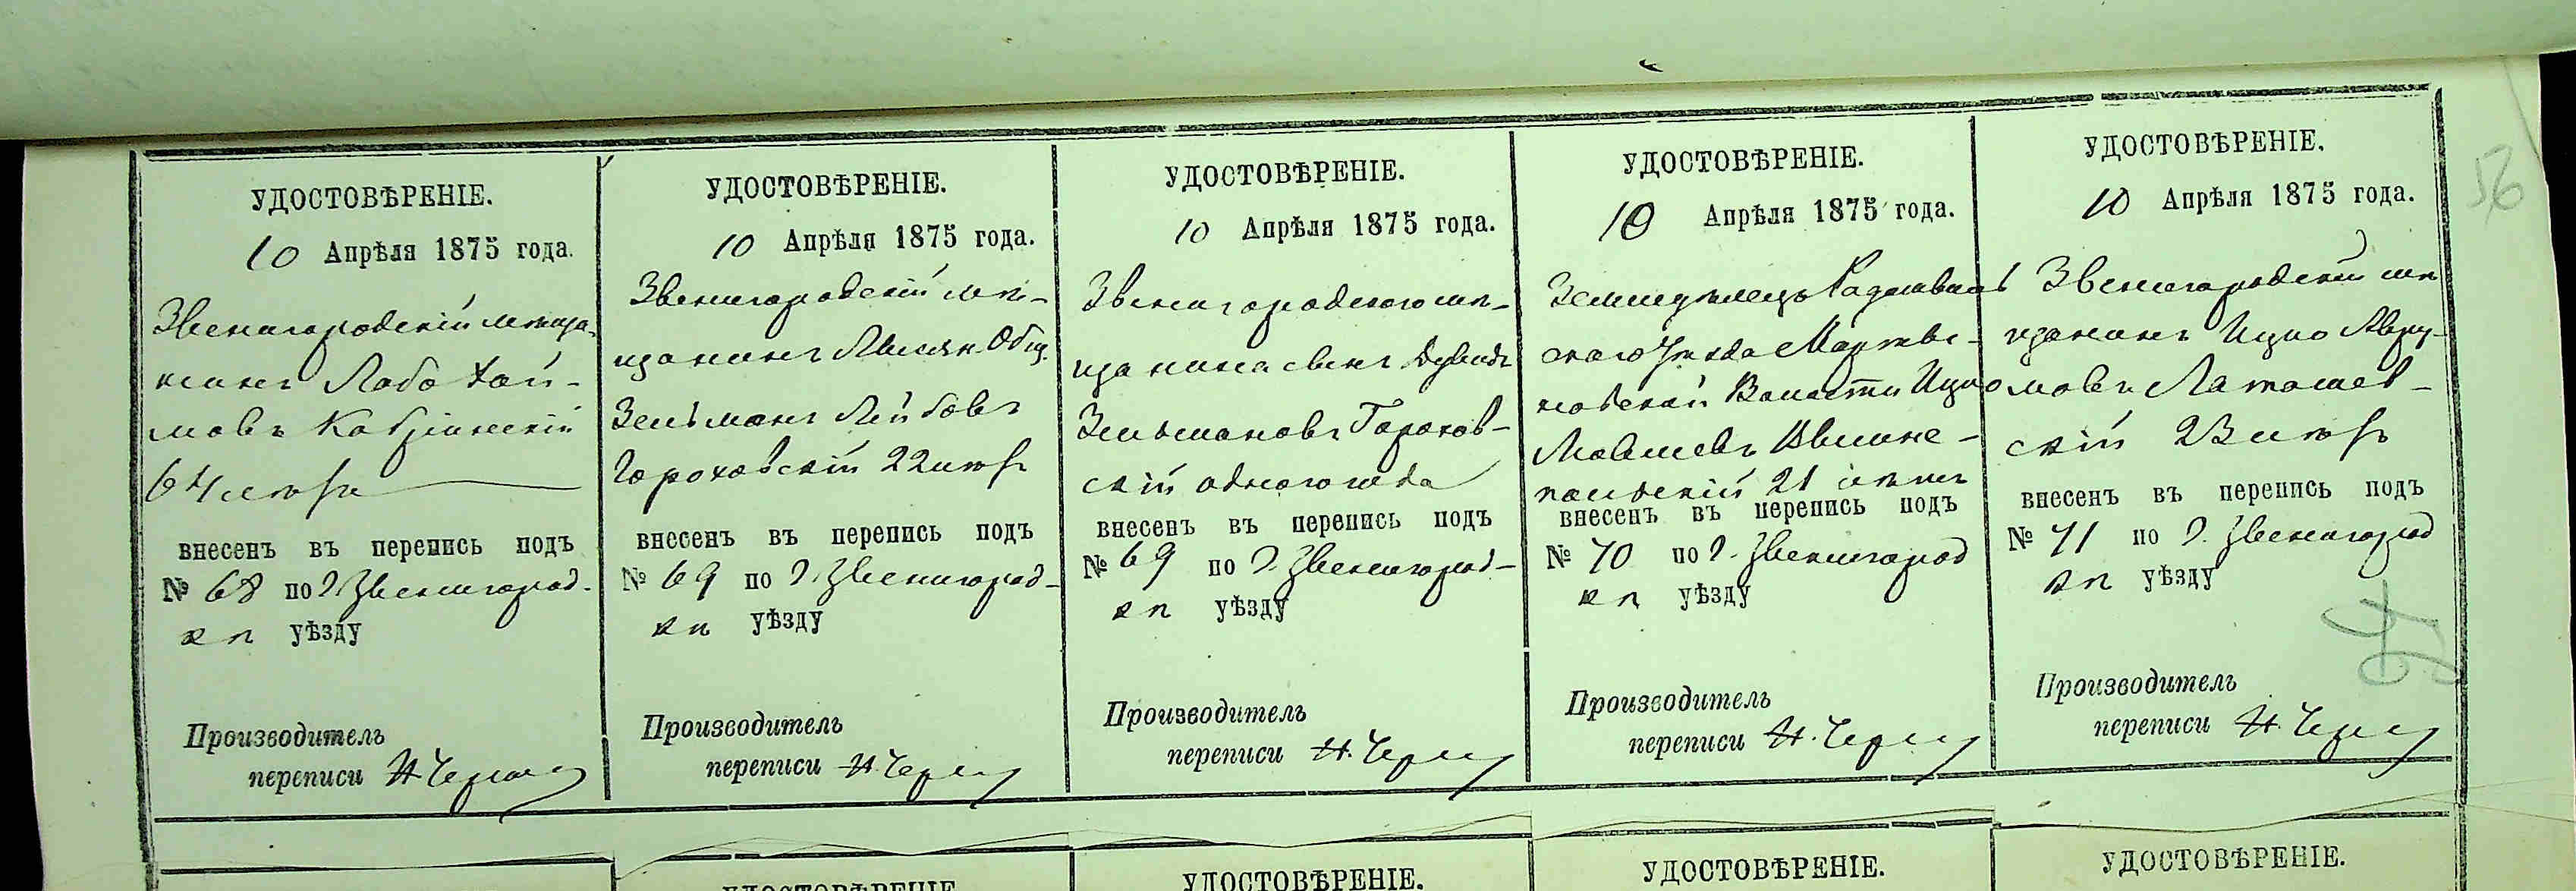 56
УДОСТОВѢРЕНІЕ.
10 Апрѣля 1875 года.
Звенигородскій мѣща-
нинъ Лабо Хаи-
мовъ
64 лѣтъ
внесенъ въ перепись подъ
№ 68 по г. Звенигород-
кѣ уѣзду
Производитель
переписи Н.
УДОСТОВѢРЕНІЕ.
10 Апрѣля 1875 года.
Звенигородскій мѣ-
щанинъ Лысян. Общ.
Зельманъ Лейбовъ
Гороховскій 22 лѣтъ
внесенъ въ перепись подъ
№ 69 по г. Звенигород-
кѣ уѣзду
Производитель
переписи Н.
УДОСТОВѢРЕНІЕ.
10 Апрѣля 1875 года.
Звенигородскаго мѣ-
щанина сынъ Дувидъ
Зельмановъ Горохов-
скій одного года
внесенъ въ перепись подъ
№ 69 по г. Звенигород-
кѣ уѣзду
Производитель
переписи Н.
УДОСТОВѢРЕНІЕ.
10 Апрѣля 1875 года.
Земледѣлецъ
скаго Уѣзда
новской Волости Ицко
Мовшевъ
польскій 21 лѣтъ
внесенъ въ перепись подъ
№ 70 по г. Звенигород
кѣ уѣзду
Производитель
переписи Н.
УДОСТОВѢРЕНІЕ.
10 Апрѣля 1875 года.
Звенигородскій мѣ
щанинъ Ицко Авру-
мовъ Латашев-
скій 23 лѣтъ
внесенъ въ перепись подъ
№ 71 по г. Звенигород
кѣ уѣзду
Производитель
переписи Н.
УДОСТОВѢРЕНІЕ
УДОСТОВѢРЕНІЕ.
УДОСТОВѢРЕНІЕ.
УДОСТОВѢРЕНІЕ.